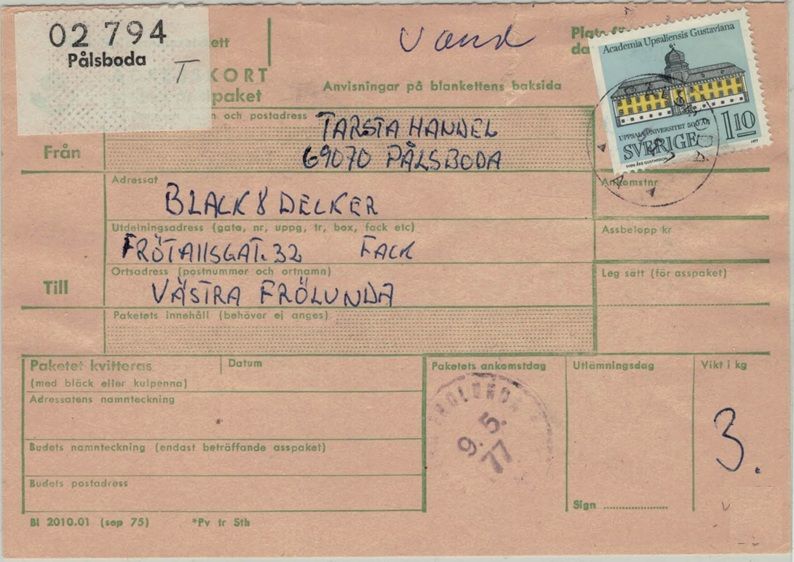 02 794
Pålsboda
T
Vand
Plats fö
da
KORT
paket
Anvisningar på blankettens baksida
Academia Upsaliensis Gustaviana
UPPSALA UNIVERSITET 500 ÅR
SVERIGE
1 10
n och postadress
Från
TARSTA HANDEL
69070 PÅLSBODA
Adressat
Ankomstnr
BLACK & DECKER
Utdelningsadress (gata, nr, uppg, tr, box, fack etc)
Assbelopp kr
FRÖTALLSGAT. 32 FACK
Till
Ortsadress (postnummer och ortnamn)
Leg sätt (för asspaket)
VÄSTRA FRÖLUNDA
Paketets innehåll (behöver ej anges)
Paketet kvitteras
(med bläck eller kulpenna)
Datum
Paketets ankomstdag
Utlämningsdag
Vikt i kg
Adressatens namnteckning
FRÖLUNDA
9. 5.
77
3.
Budets namnteckning (endast beträffande asspaket)
Budets postadress
Sign
Bl 2010.01 (sep 75) *Pv tr Sth